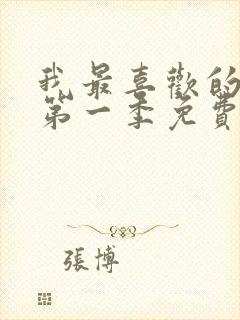 我最喜歡的
第一季免費
張博